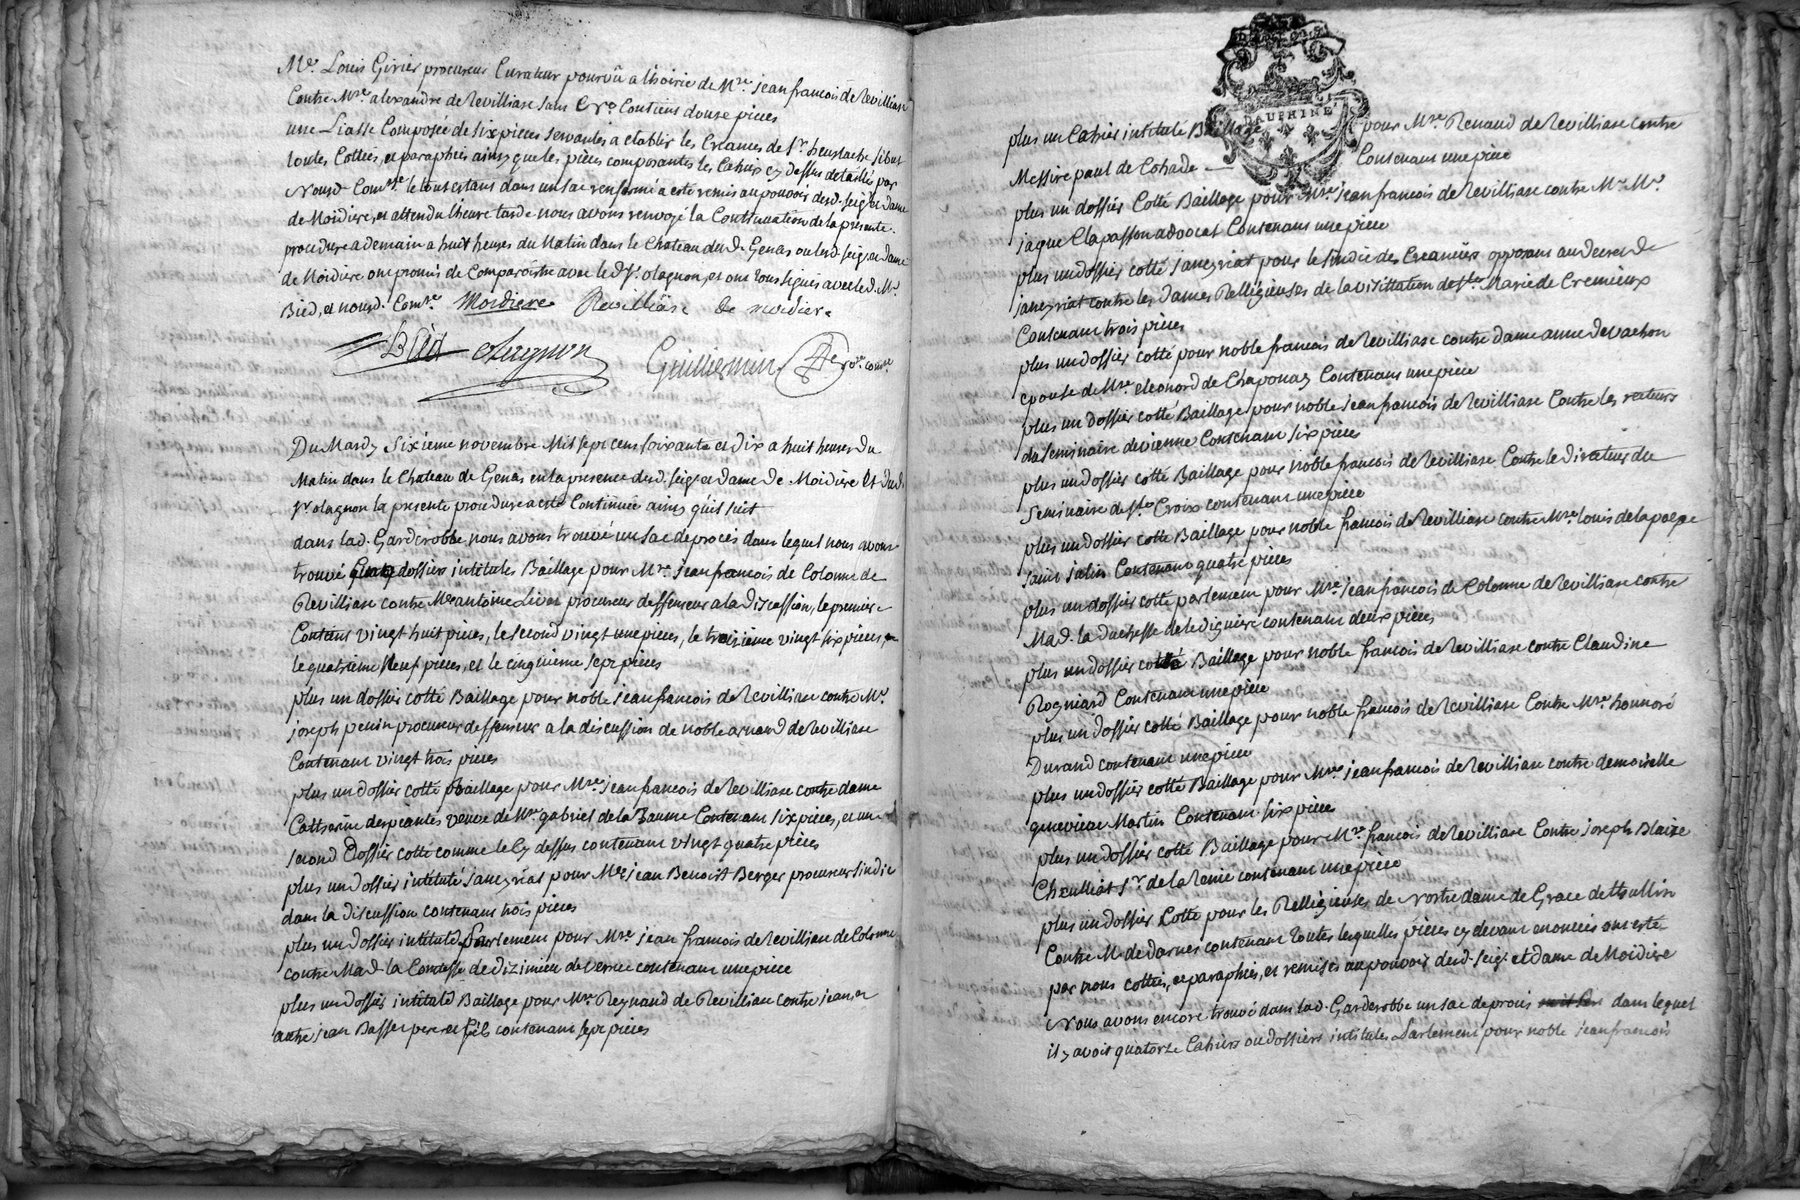 Me. Louis Girier procureur Curateur pourvû a l'hoirie de Mre. jean francois de Revilliase
Contre Mre. alexandre de Revilliase sans Contiens douse pieces
une Liasse Composée de six pieces servantes a etablir les Creances de Sr. heustache sibut
toutes Cottées, et paraphées ainsy que les pieces composantes les Cahiers cy dessus detaillés par
Nousd. Comre. le tout estant dans un sac renfermé a esté remis au pouvoir desd. seigr. et dame
de Moidiere, et attendu l'heure tarde nous avons renvoyé la Continuation de la presente
procedure a demain a huit heures du Matin dans le Chateau dud. Genas ou lesd. seigr. et dame
de Moidiere ont promis de Comparoitre avec led. Sr. olagnon, et ont tous signés avec led. Me.
Bied, et nousd. Comre. Moidiere Revilliase de moidiere
Bied olagnon Guillermin
Du Mardy Sixieme novembre Mil sept cens soixante et dix a huit heures du
Matin dans le Chateau de Genas en la presence desd. seigr. et dame de Moidiere et dud.
Sr olagnon la presente procedure a esté Continuée ainsy qu'il suit
dans lad. Garderobbe nous avons trouvé un sac de procés dans lequel nous avons
trouvé dossiers intitules Bailliage pour Mre. jean francois de Colonne de
Revilliase contre Me antoine Livet procureur deffenseur a la discussion, le premier
Contiens vingt huit pieces, le second vingt une pieces, le troisieme vingt six pieces,
le quatrieme Neuf pieces, et le cinquieme sept pieces
plus un dossier cotté Bailliage pour noble jean francois de Revilliase contre Me.
joseph penin procureur deffenseur a la discussion de noble arnaud de Revilliase
Contenant vingt trois pieces
plus un dossier cotté Bailliage pour Mre. jean francois de Revilliase contre dame
Catherine despeantes veuve de Mre. gabriel de la Baume Contenant six pieces, et un
second Dossier cotté comme le Cy dessus contenant vingt quatre pieces
plus un dossier intitulé janeyriat pour Me jean Benoist Berger procureur sindic
dans la discussion contenant trois pieces
plus un dossier intitulé parlement pour Mre. jean francois de Revilliase de Colonne
contre Mad. la Comtesse de dizimieu de verue contenant une piece
plus un dossier intitulé Bailliage pour Mre. Reynaud de Revilliase contre jean et
autre jean Basset pere et fils contenant sept pieces
DAUPHINÉ
plus un Cahier intitulé Bailliage pour Mre. Renaud de Revilliase contre
Messire paul de Cohade Contenant une piece
plus un dossier Cotté Bailliage pour Mre. jean francois de Revilliase contre Me. Me.
jaque Clapasson advocat Contenant une piece
plus un dossier cotté janeyriat pour le sindic des Creanciers opposans au decret de
janeyriat contre les dames Relligieuses de la visittation de Ste. Marie de Cremieux
Contenant trois pieces
plus un dossier cotté pour noble francois de Revilliase contre dame anne de vachon
epouse de Mre. eleonord de Chaponay Contenant une piece
plus un dossier cotté Bailliage pour noble jean francois de Revilliase Contre les recteurs
du seminaire de vienne Contenant six pieces
plus un dossier cotté Bailliage pour noble francois de Revilliase Contre le directeur du
seminaire de Ste. Croix contenant une piece
plus un dossier cotté Bailliage pour noble francois de Revilliase contre Mre. louis de la poepe
saint julin Contenant quatre pieces
plus un dossier cotté parlement pour Mre. jean francois de Colonne de Revilliase contre
Mad. la duchesse de lediguiere contenant deux pieces
plus un dossier cotté Bailliage pour noble francois de Revilliase contre Claudine
Rogniard Contenant une piece
plus un dossier cotté Bailliage pour noble francois de Revilliase Contre Mre. honnoré
Durand contenant une piece
plus un dossier cotté Bailliage pour Mre. jean francois de Revilliase contre demoiselle
genevieve Martin Contenant six pieces
plus un dossier cotté Bailliage pour Mre. francois de Revilliase Contre joseph Blaize
Sr. de la contenant une piece
plus un dossier Cotté pour les Relligieuses de Nostre dame de Grace de thullin
Contre M. de darnes contenant toutes lesquelles pieces cy devant enoncées ont esté
par nous cottées, et paraphées, et remises au pouvoir desd. seigr. et dame de Moidiere
Nous avons encore trouvé dans lad. Garderobbe un sac de procés dans lequel
il y avoit quatorze Cahiers ou dossiers intitules Parlement pour noble jean francois